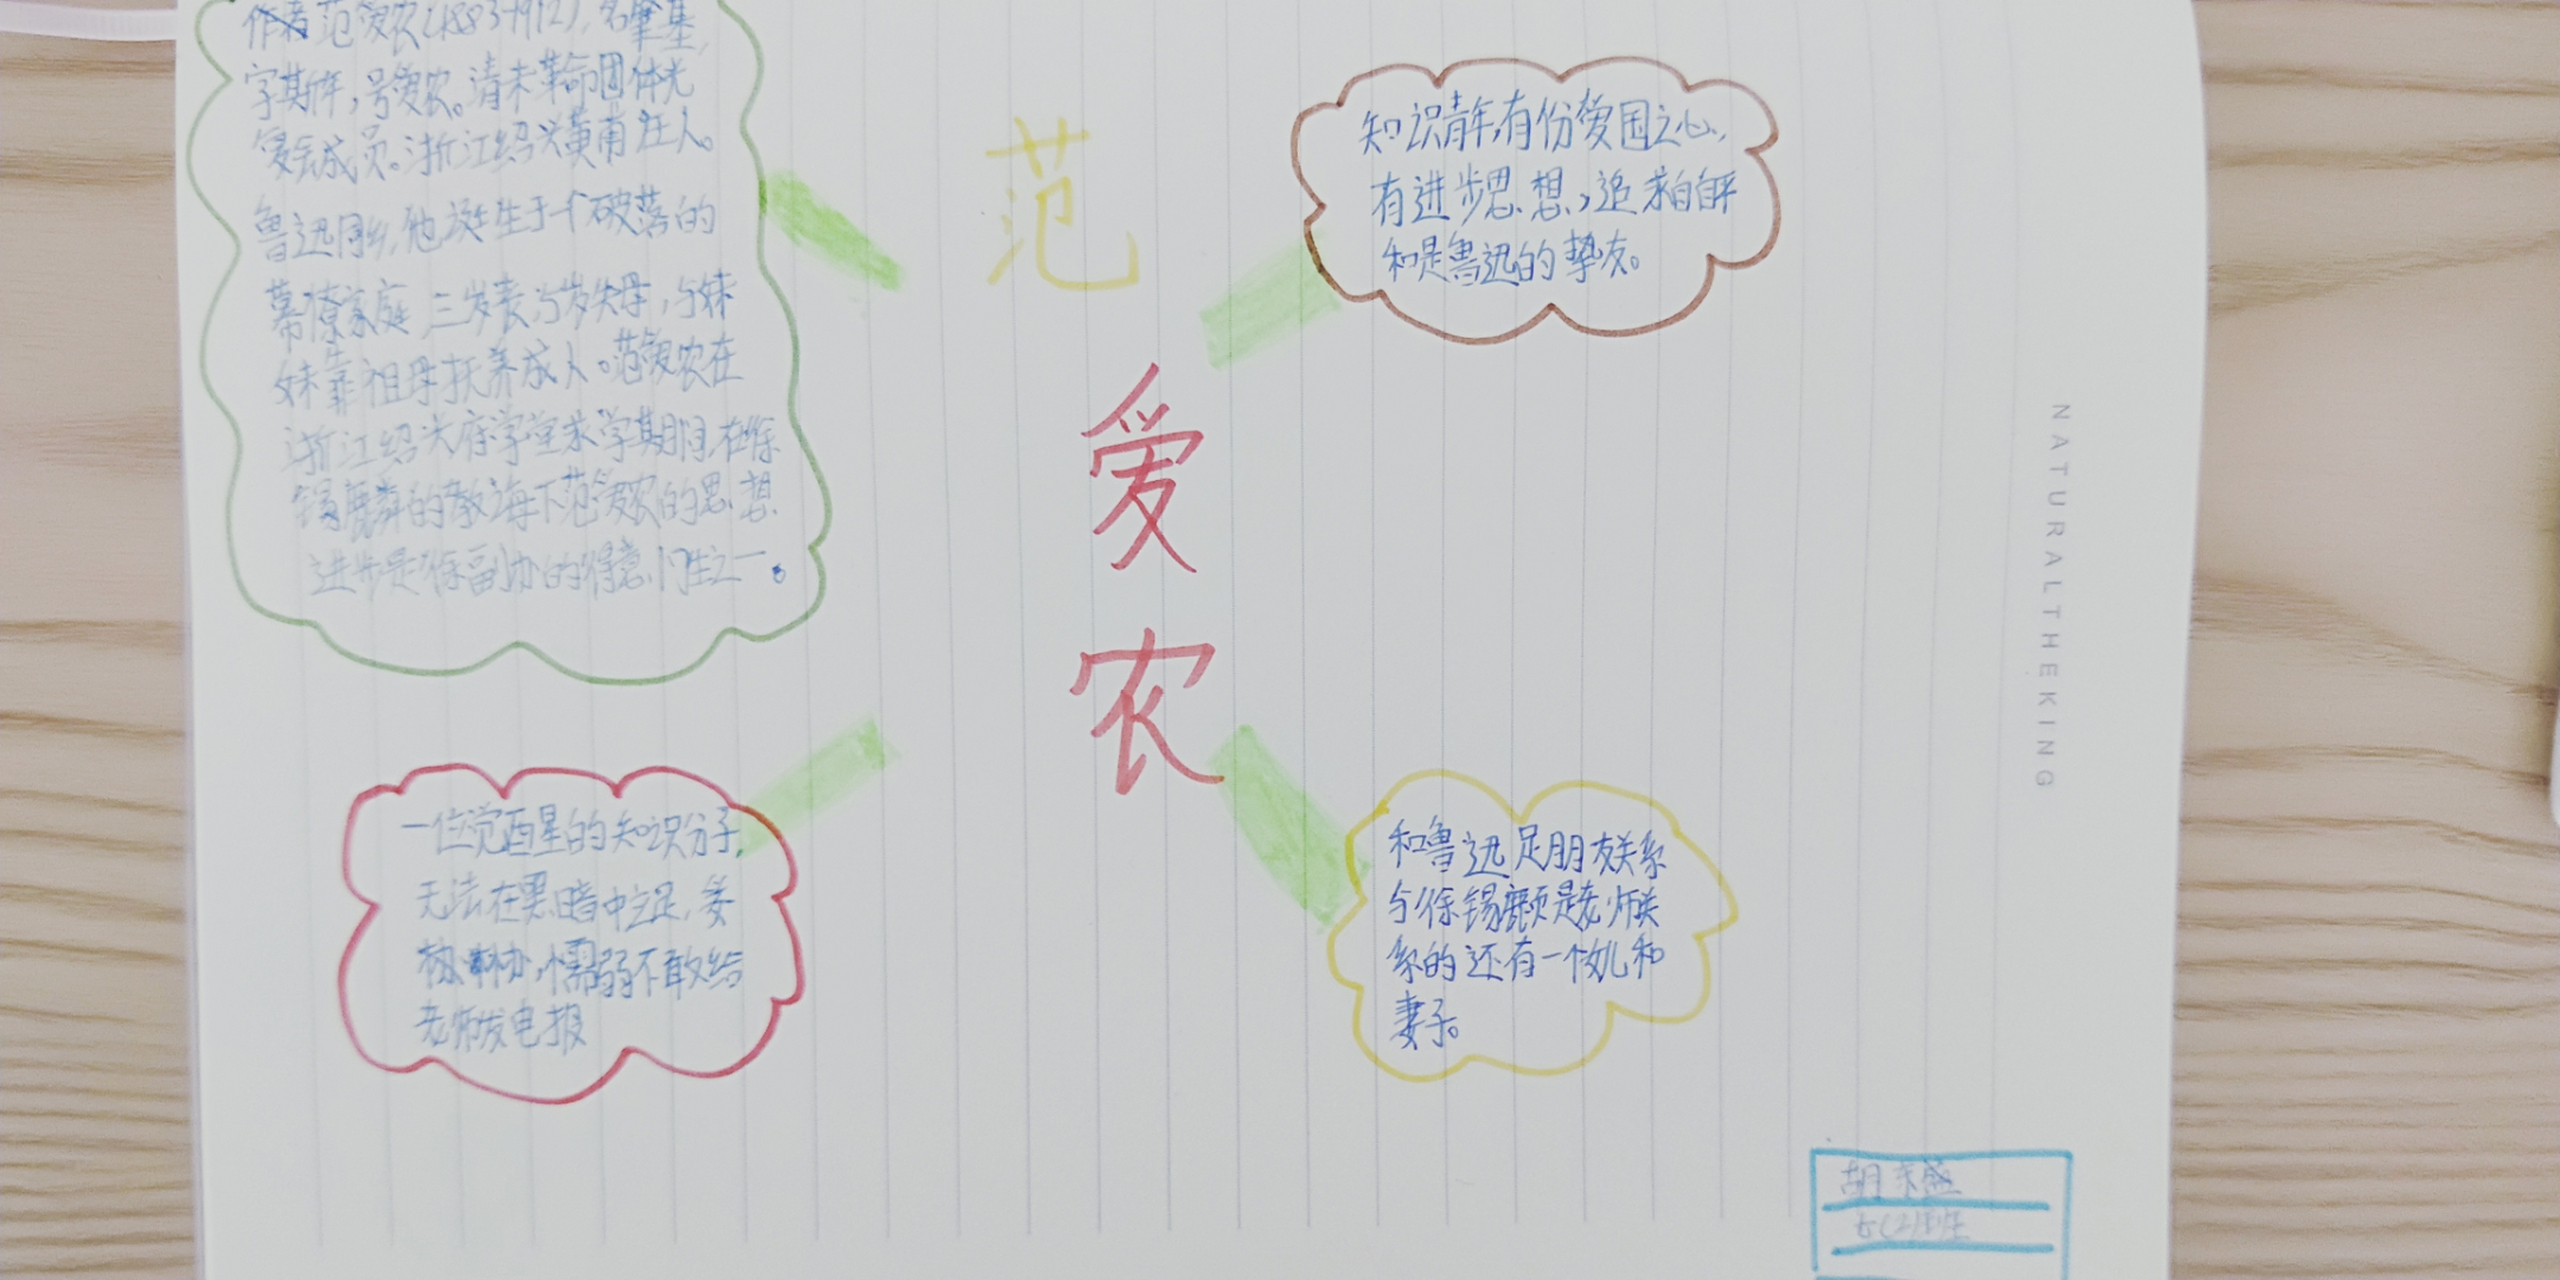 范
爱
农
作者范爱农(1883-1912),名肇基,
字斯年,号爱农。清末革命团体光
复会成员。浙江绍兴黄甫庄人。
鲁迅同乡,他诞生于一个破落的
幕僚家庭,三岁丧父,5岁失母,与妹
妹靠祖母抚养成人。范爱农在
浙江绍兴府学堂求学期间,在徐
锡麟的教诲下范爱农的思想
进步是徐副办的得意门生之一。
知识青年,有份爱国之心,
有进步思想,追求自由平
和是鲁迅的挚友。
一位觉酉星的知识分子,
无法在黑暗中立足,
懦弱不敢给
老师发电报
和鲁迅是朋友关系
与徐锡麟是老师关
系的还有一个女儿和
妻子。
NATURALTHEKING
胡东盛
七(2)班